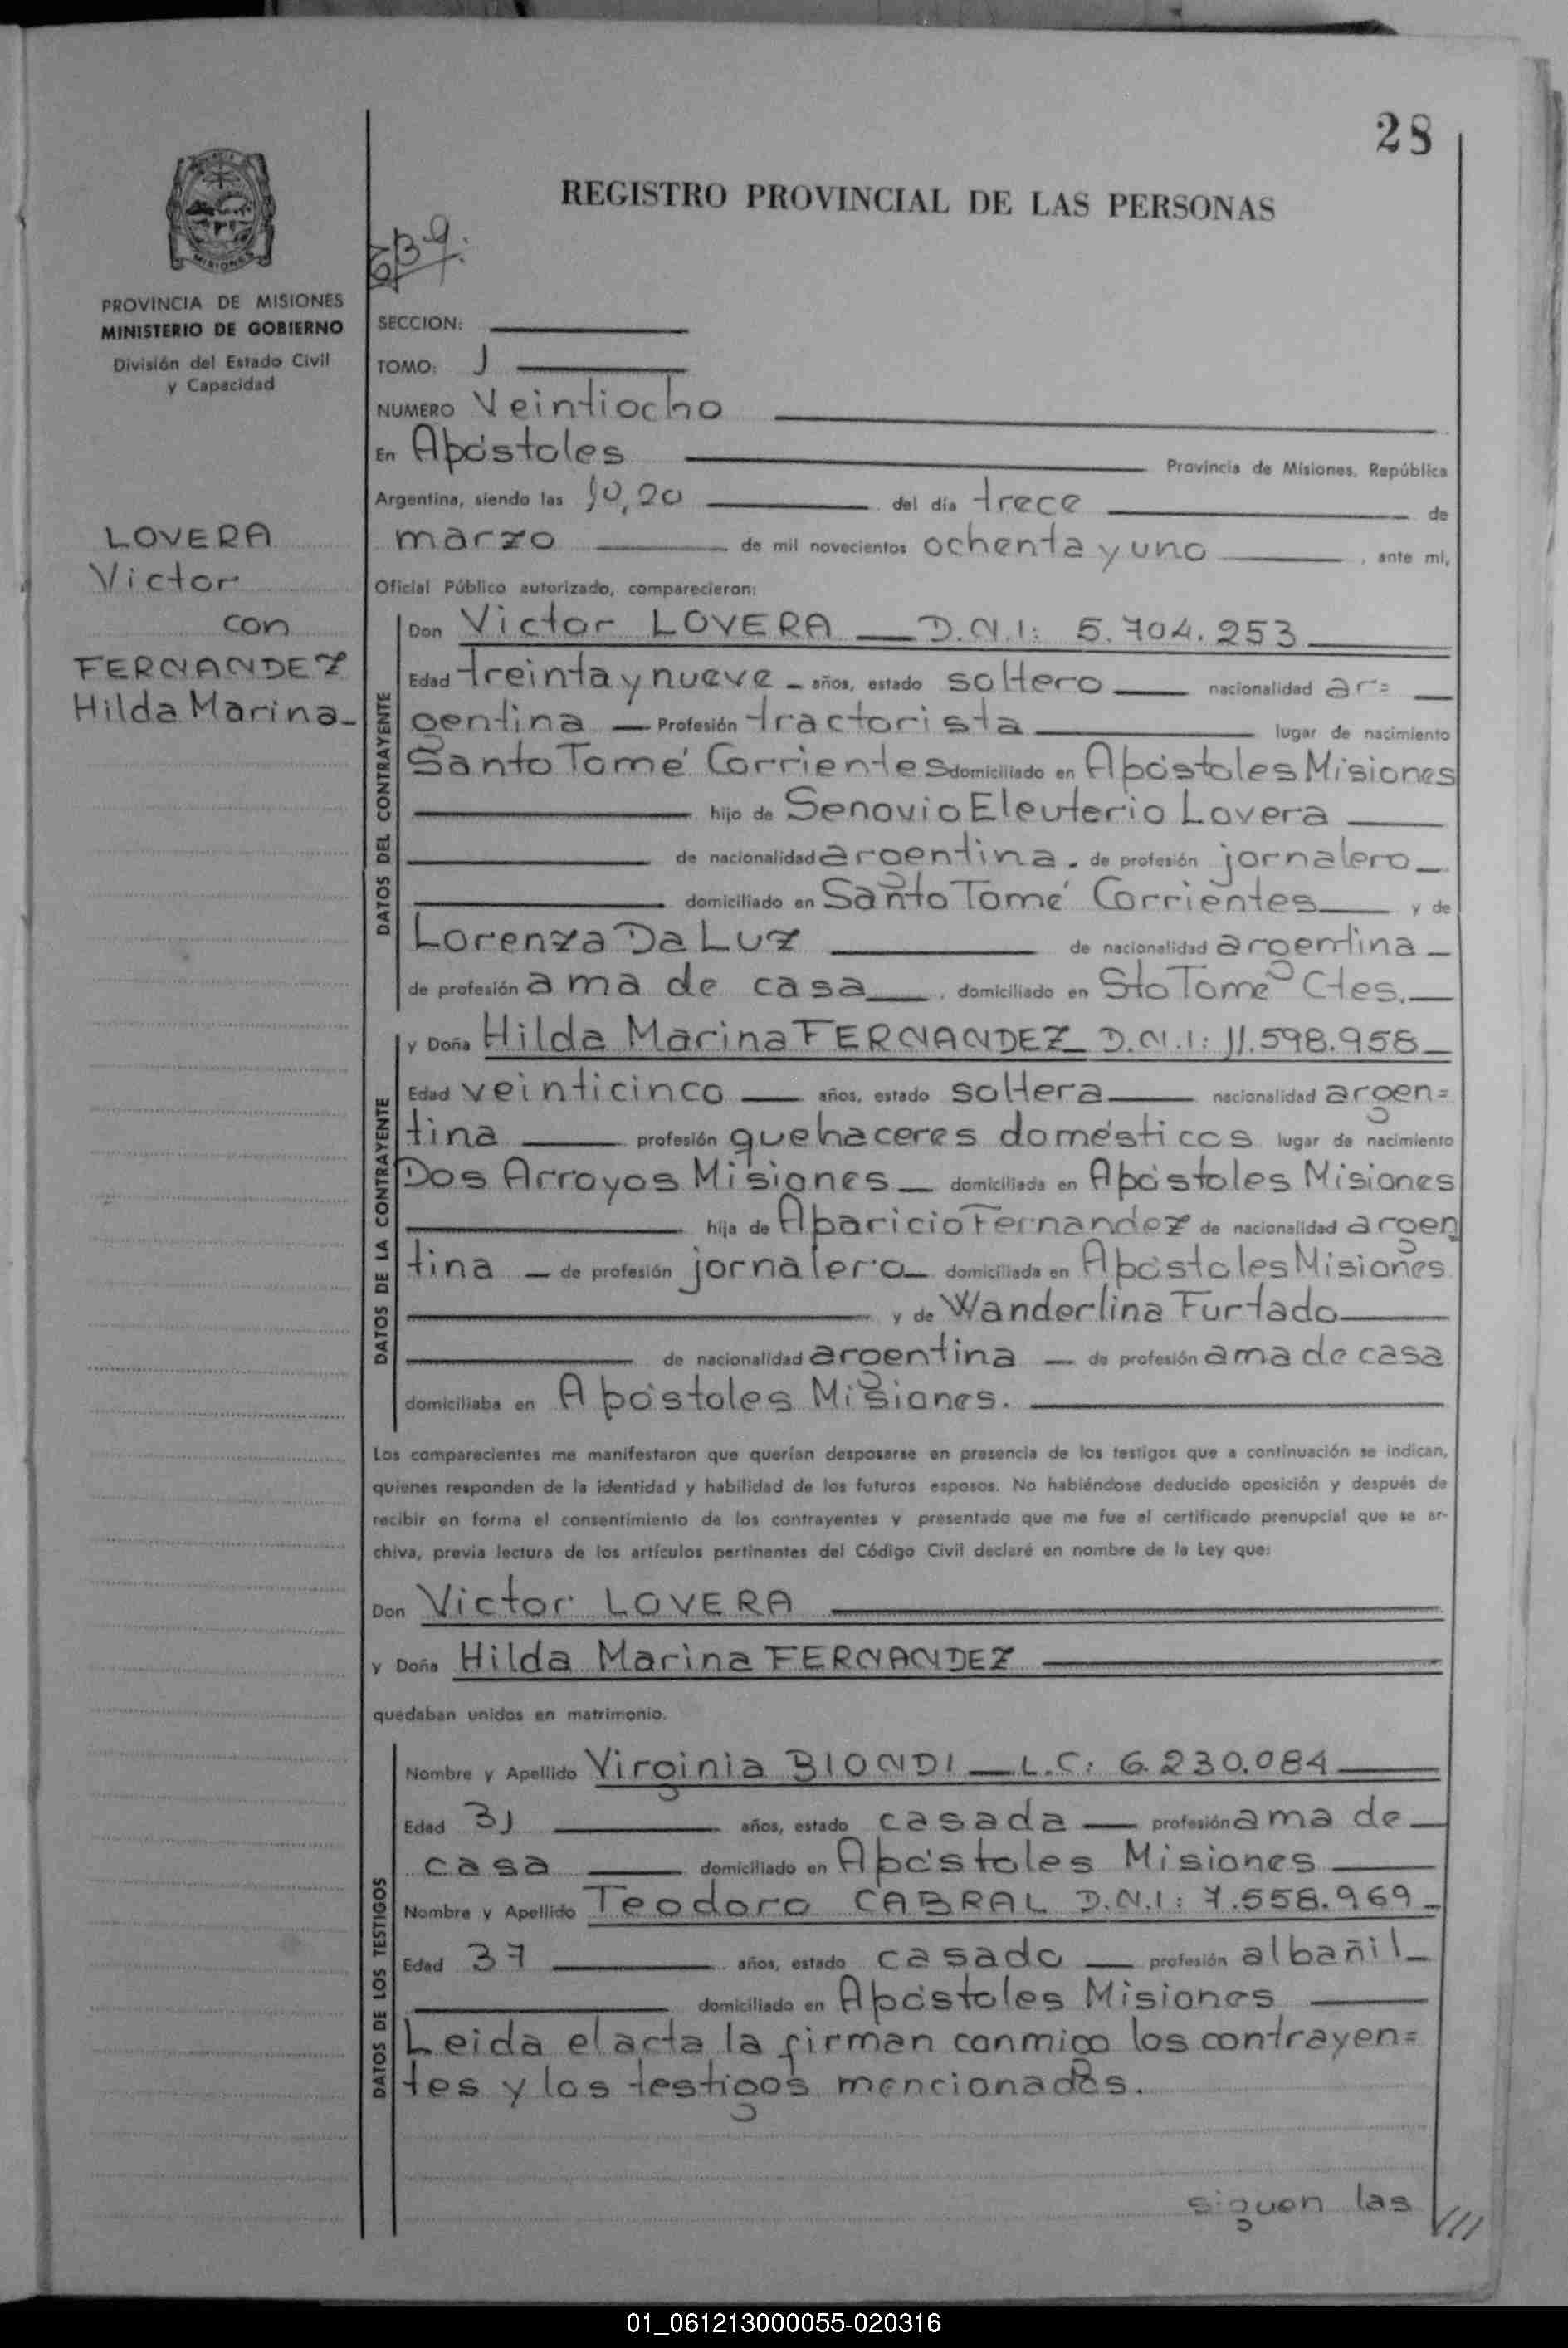 28
REGISTRO PROVINCIAL DE LAS PERSONAS
PROVINCIA DE MISIONES
MINISTERIO DE GOBIERNO
División del Estado Civil
y Capacidad
SECCION:
TOMO: I
NUMERO Veintiocho
En Apóstoles Provincia de Misiones, República
Argentina, siendo las 10,20 del día trece de
marzo de mil novecientos ochenta y uno, ante mí,
Oficial Público autorizado, comparecieron:
LOVERA
Victor
con
FERNANDEZ
Hilda Marina-
DATOS DEL CONTRAYENTE
Don Victor LOVERA D.N.I: 5.704.253
Edad treinta y nueve - años, estado soltero nacionalidad ar=
gentina Profesión tractorista lugar de nacimiento
Santo Tomé Corrientes domiciliado en Apóstoles Misiones
hijo de Senovio Eleuterio Lovera
de nacionalidad argentina. de profesión jornalero
domiciliado en Santo Tomé Corrientes y de
Lorenza Da Luz de nacionalidad argentina
de profesión ama de casa, domiciliado en Sto Tomé Ctes.
DATOS DE LA CONTRAYENTE
y Doña Hilda Marina FERNANDEZ D.N.I: 11.598.958
Edad veinticinco años, estado soltera nacionalidad argen=
tina profesión quehaceres domésticos lugar de nacimiento
Dos Arroyos Misiones domiciliada en Apóstoles Misiones
hija de Aparicio Fernandez de nacionalidad argen
tina de profesión jornalero domiciliada en Apóstoles Misiones
y de Wanderlina Furtado
de nacionalidad argentina de profesión ama de casa
domiciliaba en Apóstoles Misiones.
Los comparecientes me manifestaron que querían desposarse en presencia de los testigos que a continuación se indican,
quienes responden de la identidad y habilidad de los futuros esposos. No habiéndose deducido oposición y después de
recibir en forma el consentimiento de los contrayentes y presentado que me fue el certificado prenupcial que se ar-
chiva, previa lectura de los artículos pertinentes del Código Civil declaré en nombre de la Ley que:
Don Victor LOVERA
y Doña Hilda Marina FERNANDEZ
quedaban unidos en matrimonio.
DATOS DE LOS TESTIGOS
Nombre y Apellido Virginia BIONDI L.C: 6.230.084
Edad 31 años, estado casada profesión ama de
casa domiciliado en Apóstoles Misiones
Nombre y Apellido Teodoro CABRAL D.N.I: 7.558.969
Edad 37 años, estado casado profesión albañil
domiciliado en Apóstoles Misiones
Leida el acta la firman conmigo los contrayen=
tes y los testigos mencionados.
siguen las ///
01_061213000055-020316